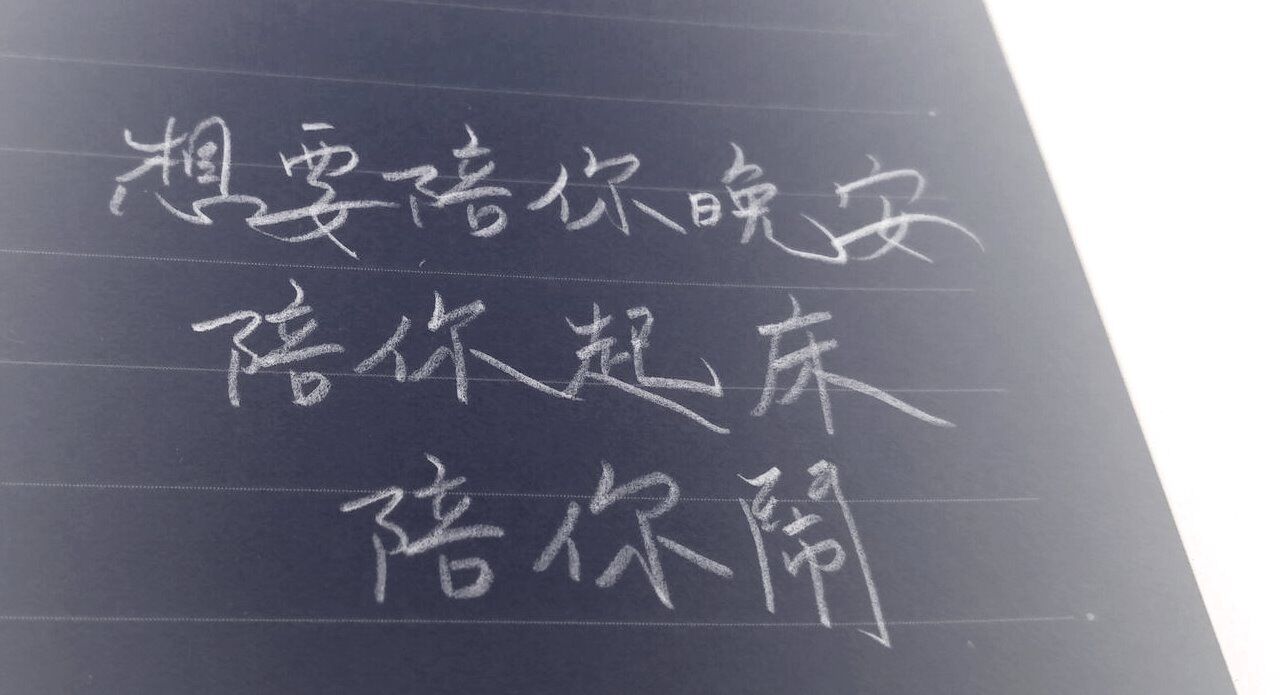 想要陪你晚安
陪你起床
陪你鬧